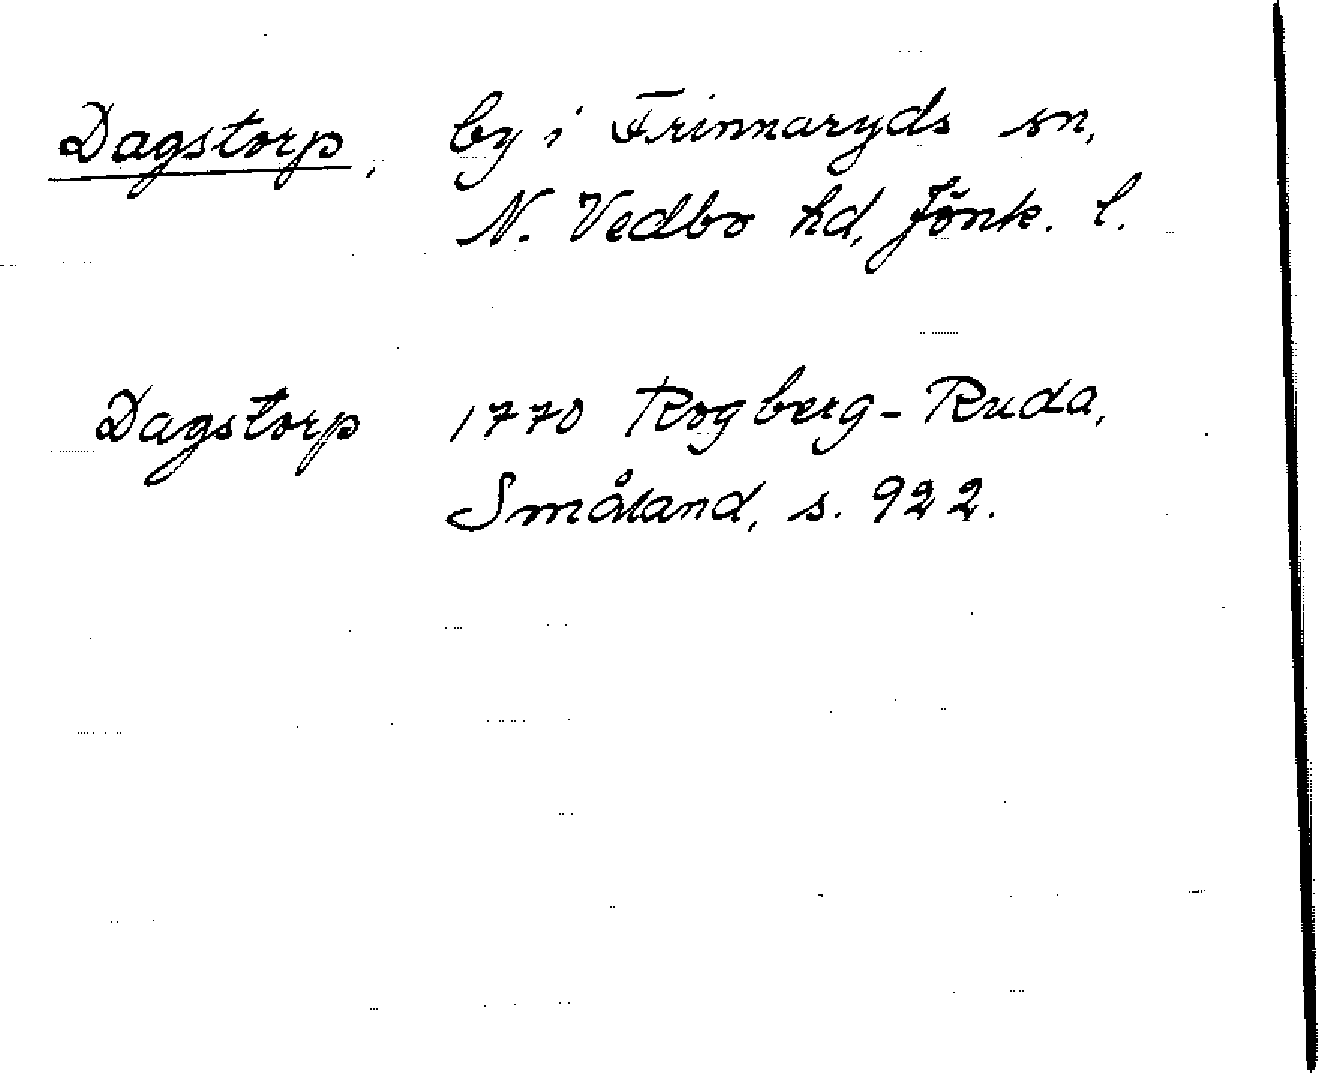 Dagstorp, by i Frinnaryds sn,
N. Vedbo hd, Jönk. l.
Dagstorp 1770 Rogberg-Ruda,
Småland, s. 922.